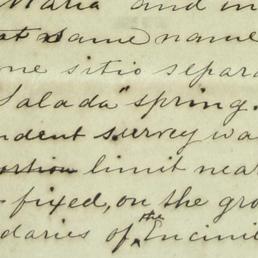 Maria" and in
at same name
one sitio separa
Salada" spring.
ndent survey wa
limit near
fixed, on the gro
daries of the Encini